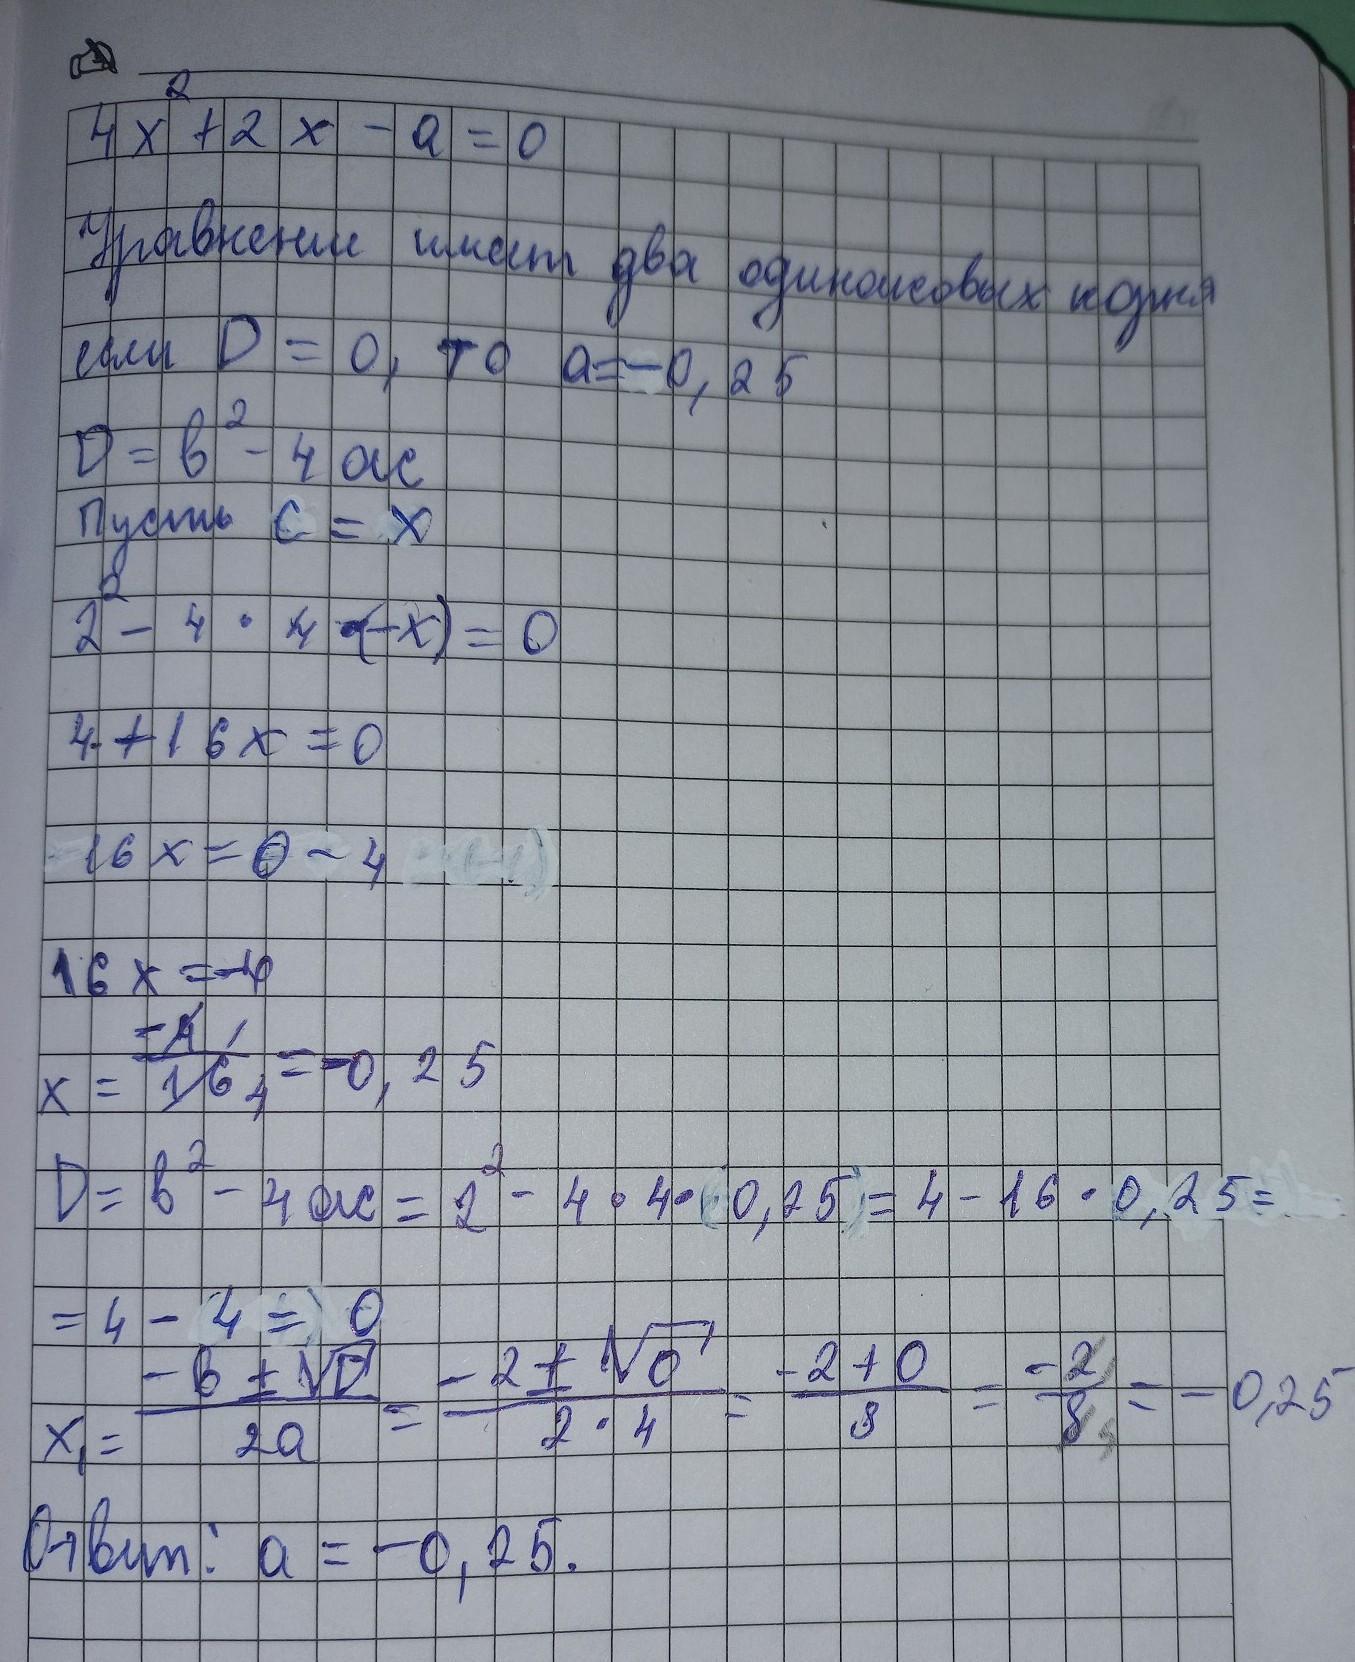 4x²+2x-a=0
Уравнение имеет два одинаковых корня
если D=0, то a=-0,25
D=b²-4ac
Пусть c=x
2²-4·4·(-x)=0
4+16x=0
16x=0-4
16x=-4
x=-4/16=-0,25
D=b²-4ac=2²-4·4·0,25=4-16·0,25=
=4-4=0
x₁=(-b±√D)/2a=(-2±√0)/(2·4)=(-2+0)/8=-2/8=-0,25
Ответ: a=-0,25.